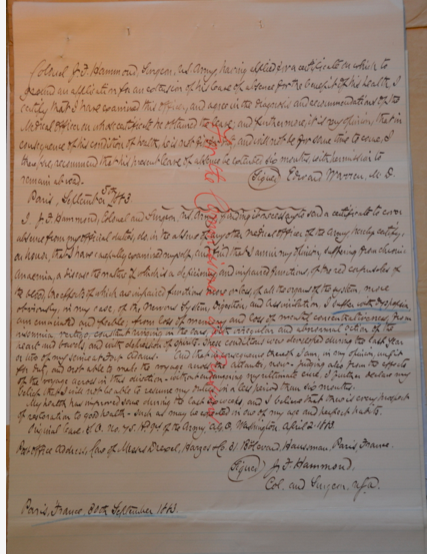 Colonel J. F. Hammond, Surgeon, U.S. Army, having applied for a certificate on which to
an application for an extension of his leave of absence for the benefit of his health, I
certify that I have examined this officer, and agree in the diagnosis and recommendations of the
Medical Officer on whose certificate he obtained the leave; and furthermore, it is my opinion, that in
consequence of his condition of health, he is not fit for duty and will not be for some time to come. I
therefore recommend that his present leave of absence be extended six months, with permission to
remain abroad. (Signed) Edward Warren, M.D.
Paris, September 5th 1883
I, J. F. Hammond, Colonel and Surgeon, U.S. Army, finding it necessary to send a certificate to cover
absence from my official duties, do, in the absence of any other Medical Officer of the Army, hereby certify,
on honor, that I have carefully examined myself, and find that I am in my opinion, suffering from chronic
Anaemia, a disease the nature of which is a deficiency and impaired functions, of the red corpuscles of
the blood, the effects of which are impaired functions more or less of all the organs of the system, more
obviously, in my case, of the Nervous System, Digestion, and Assimilation. I suffer with
am emaciated and feeble; from loss of memory and loss of mental concentration; from
insomnia, vertigo, with irregular and abnormal action of the
heart and bowels, and with depression of spirits. These conditions were developed during the last year
or two of my service at Fort Adams. And that in consequence thereof I am, in my opinion, unfit
for duty, and not able to make the voyage across the Atlantic, now; judging also from the effects
of the voyage across in this direction, notwithstanding my ultimate end, I further declare my
belief, that I will not be able to resume my duties in a less period than six months.
My health has improved some during the last and I believe that there is every prospect
of restoration to good health such as may be expected in one of my age and habits.
Original leave: S.O. No. 75. Hd. Qrs. of the Army, A.G.O. Washington April 2. 1883.
Post office address: Care of Messrs Drexel, Harjes & Co. 31 Boulevard Haussman. Paris, France.
(Signed) J. F. Hammond,
Col. and Surgeon, U.S.A.
Paris, France 30th September 1883.